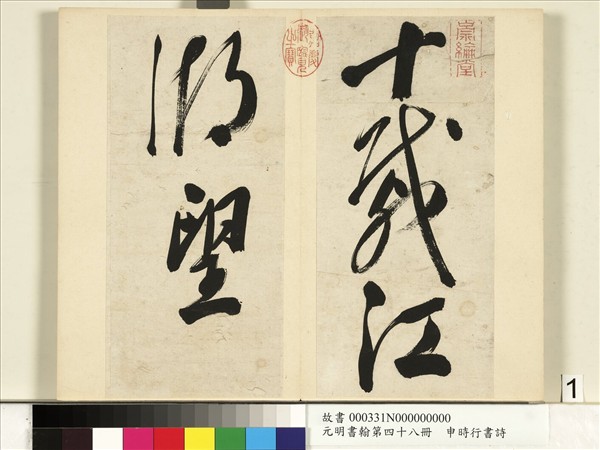 十載江
湖望
乾隆御覽之寶
1
故書 000331N000000000
元明書翰第四十八冊 申時行書詩